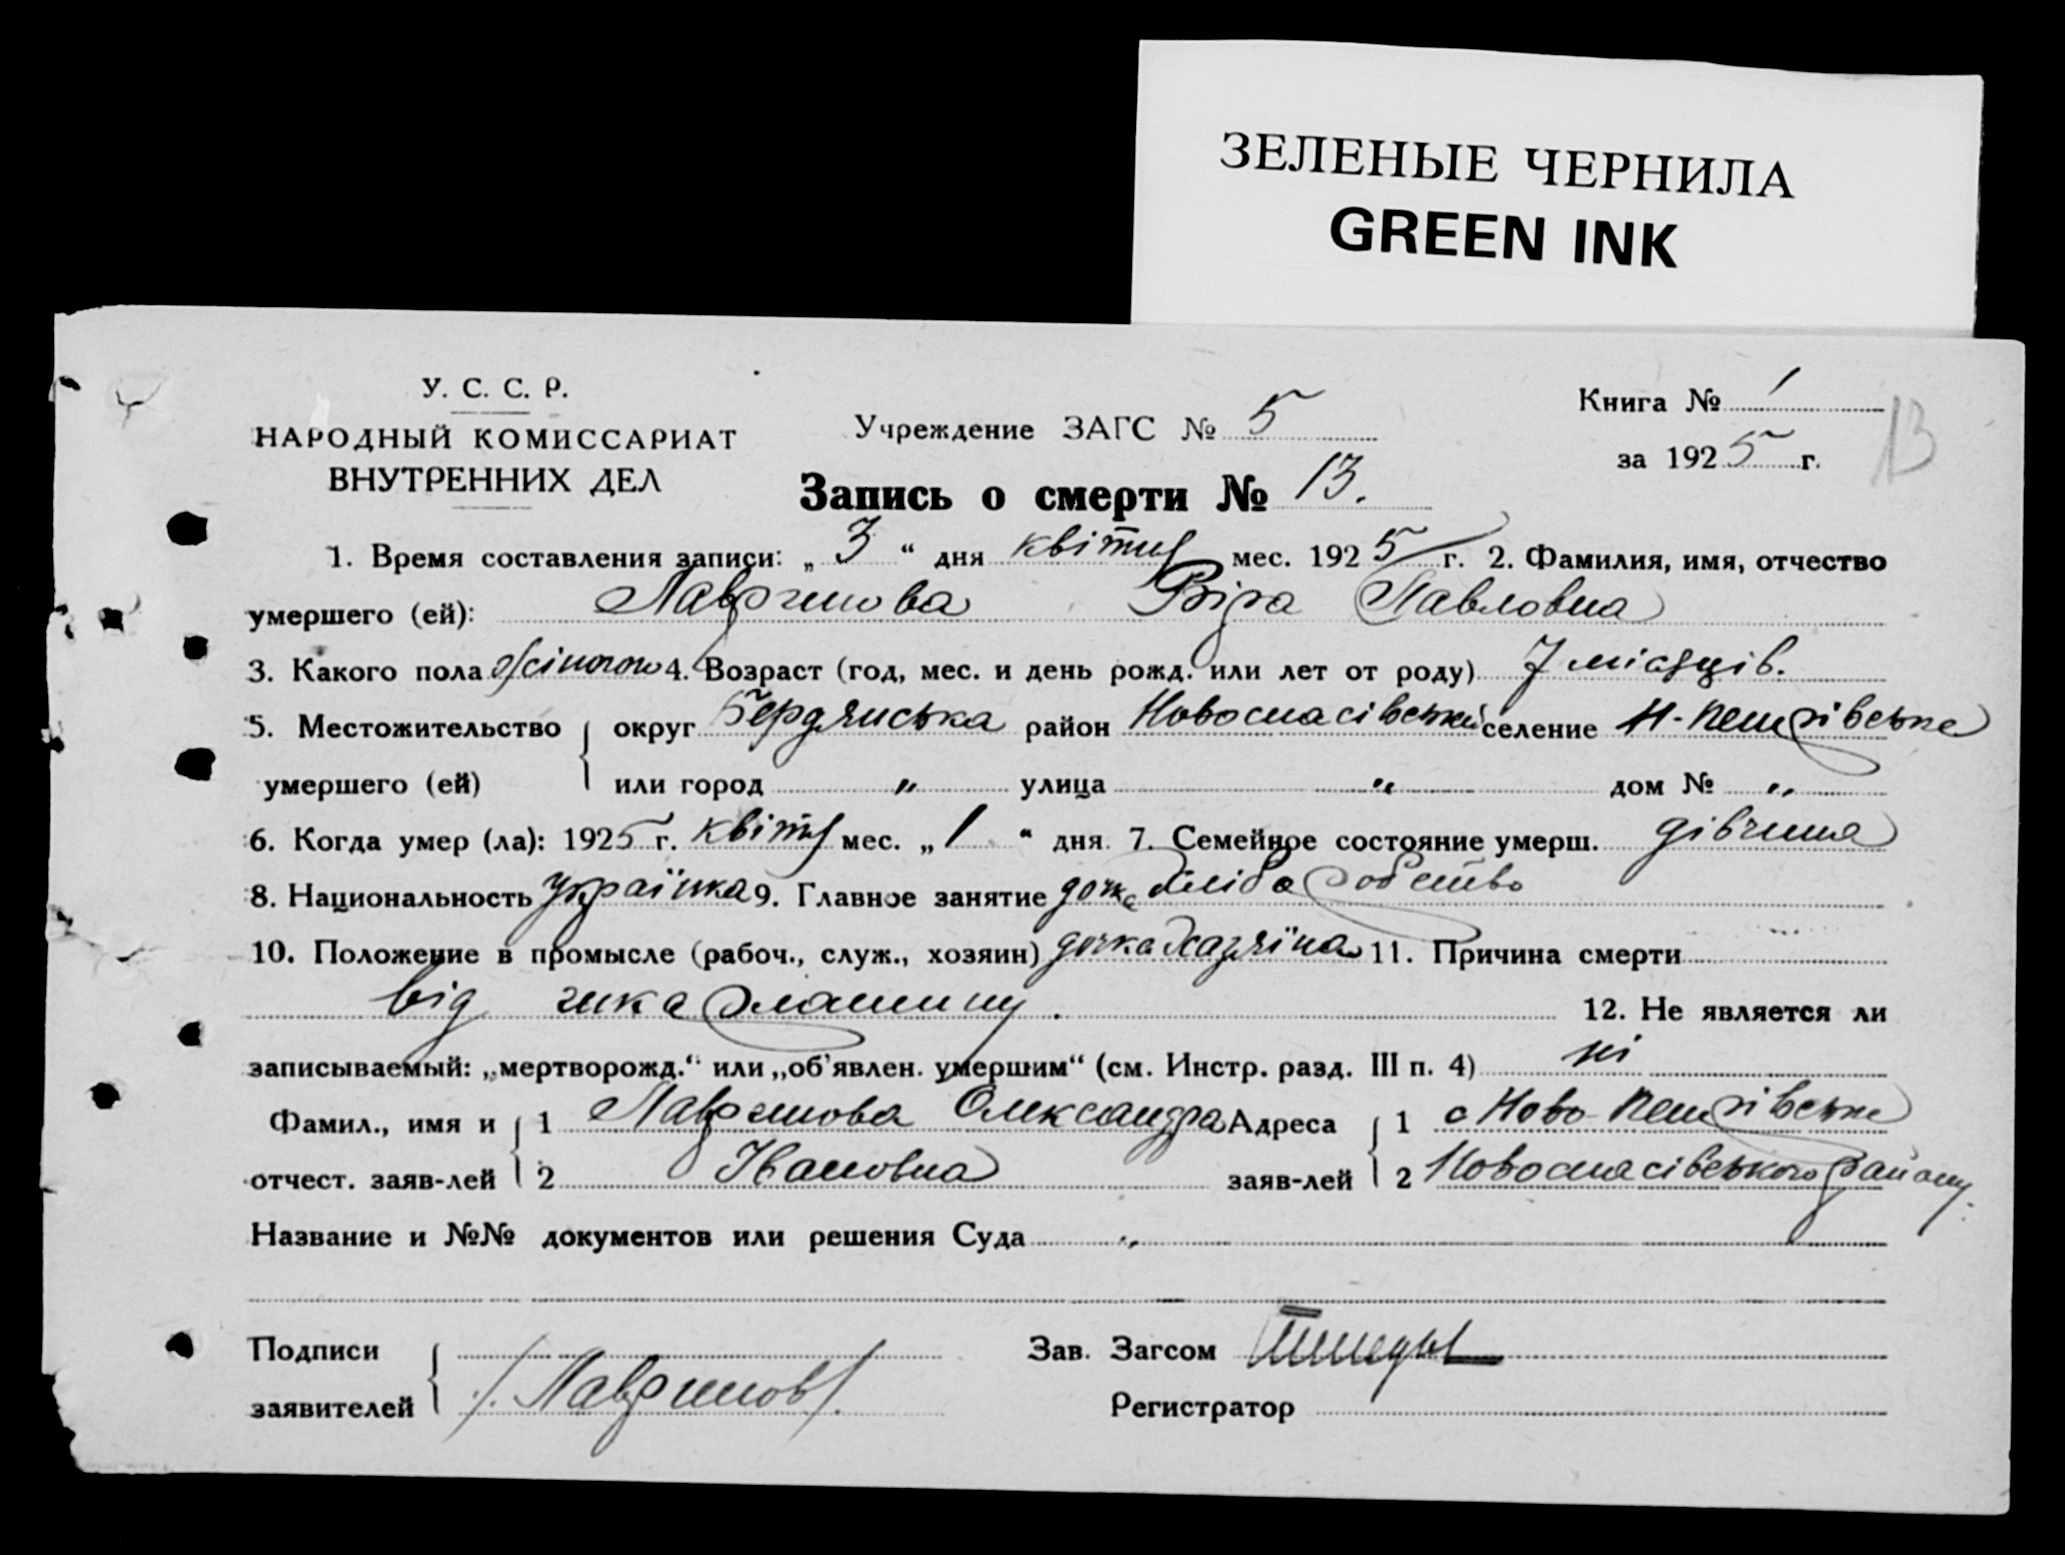 ЗЕЛЕНЫЕ ЧЕРНИЛА
GREEN INK
У. С. С. Р.
НАРОДНЫЙ КОМИССАРИАТ
ВНУТРЕННИХ ДЕЛ
Учреждение ЗАГС № 5
Книга № 1
за 1925 г.
13
Запись о смерти № 13.
1. Время составления записи: „ 3 “ дня квітня мес. 1925 г. 2. Фамилия, имя, отчество
умершего (ей): Віра Павловна
3. Какого пола жіночого 4. Возраст (год, мес. и день рожд. или лет от роду) 7 місяців.
5. Местожительство округ Бердянська район Новоспасівський селение Н-Петрівське
умершего (ей) или город „ улица „ дом № „
6. Когда умер (ла): 1925 г. квітня мес. „ 1 “ дня. 7. Семейное состояние умерш. дівчина
8. Национальность Українка 9. Главное занятие дочка хліборобство
10. Положение в промысле (рабоч., служ., хозяин) дочка Хазяїна 11. Причина смерти
від шкарлатину.
12. Не является ли
записываемый: „мертворожд.“ или „об'явлен. умершим“ (см. Инстр. разд. III п. 4) ні
Фамил., имя и 1 Олександра Адреса 1 с Ново-Петрівське
отчест. заяв-лей 2 Ивановна заяв-лей 2 Новоспасівського району.
Название и №№ документов или решения Суда „
Подписи Зав. Загсом
заявителей Регистратор